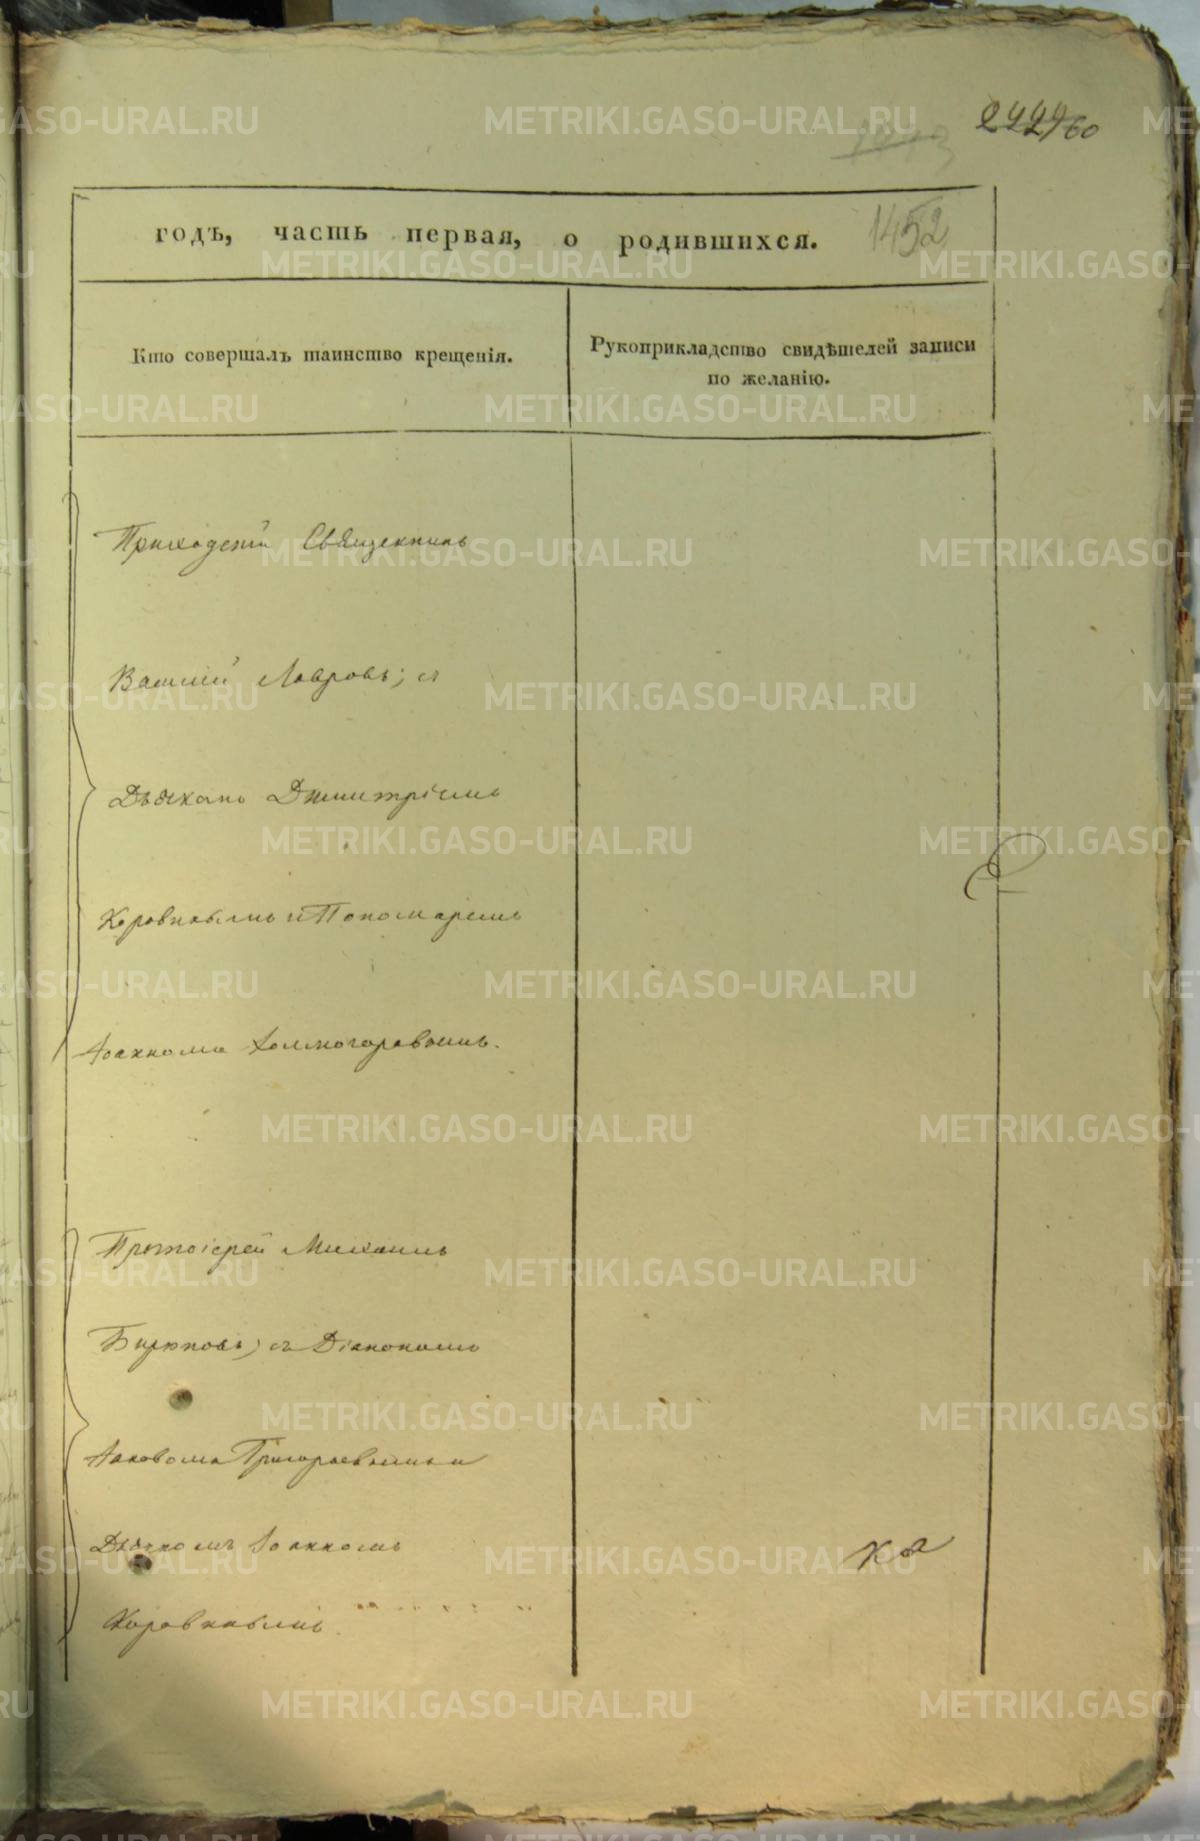 60
1452
годъ, часть первая, о родившихся.
Кто совершалъ таинство крещенія.
Рукоприкладство свидѣтелей записи
по желанію.
Приходскій Священникъ
Василій Лавровъ; съ
Дьячкомъ Димитріемъ
Коровинымъ и Пономаремъ
Іоанномъ Холмогоровымъ.
Протоіерей Михаилъ
Бирюковъ, съ Діакономъ
Іаковомъ Григорьевымъ и
Дьячкомъ Іоанномъ
Коровинымъ
METRIKI.GASO-URAL.RU